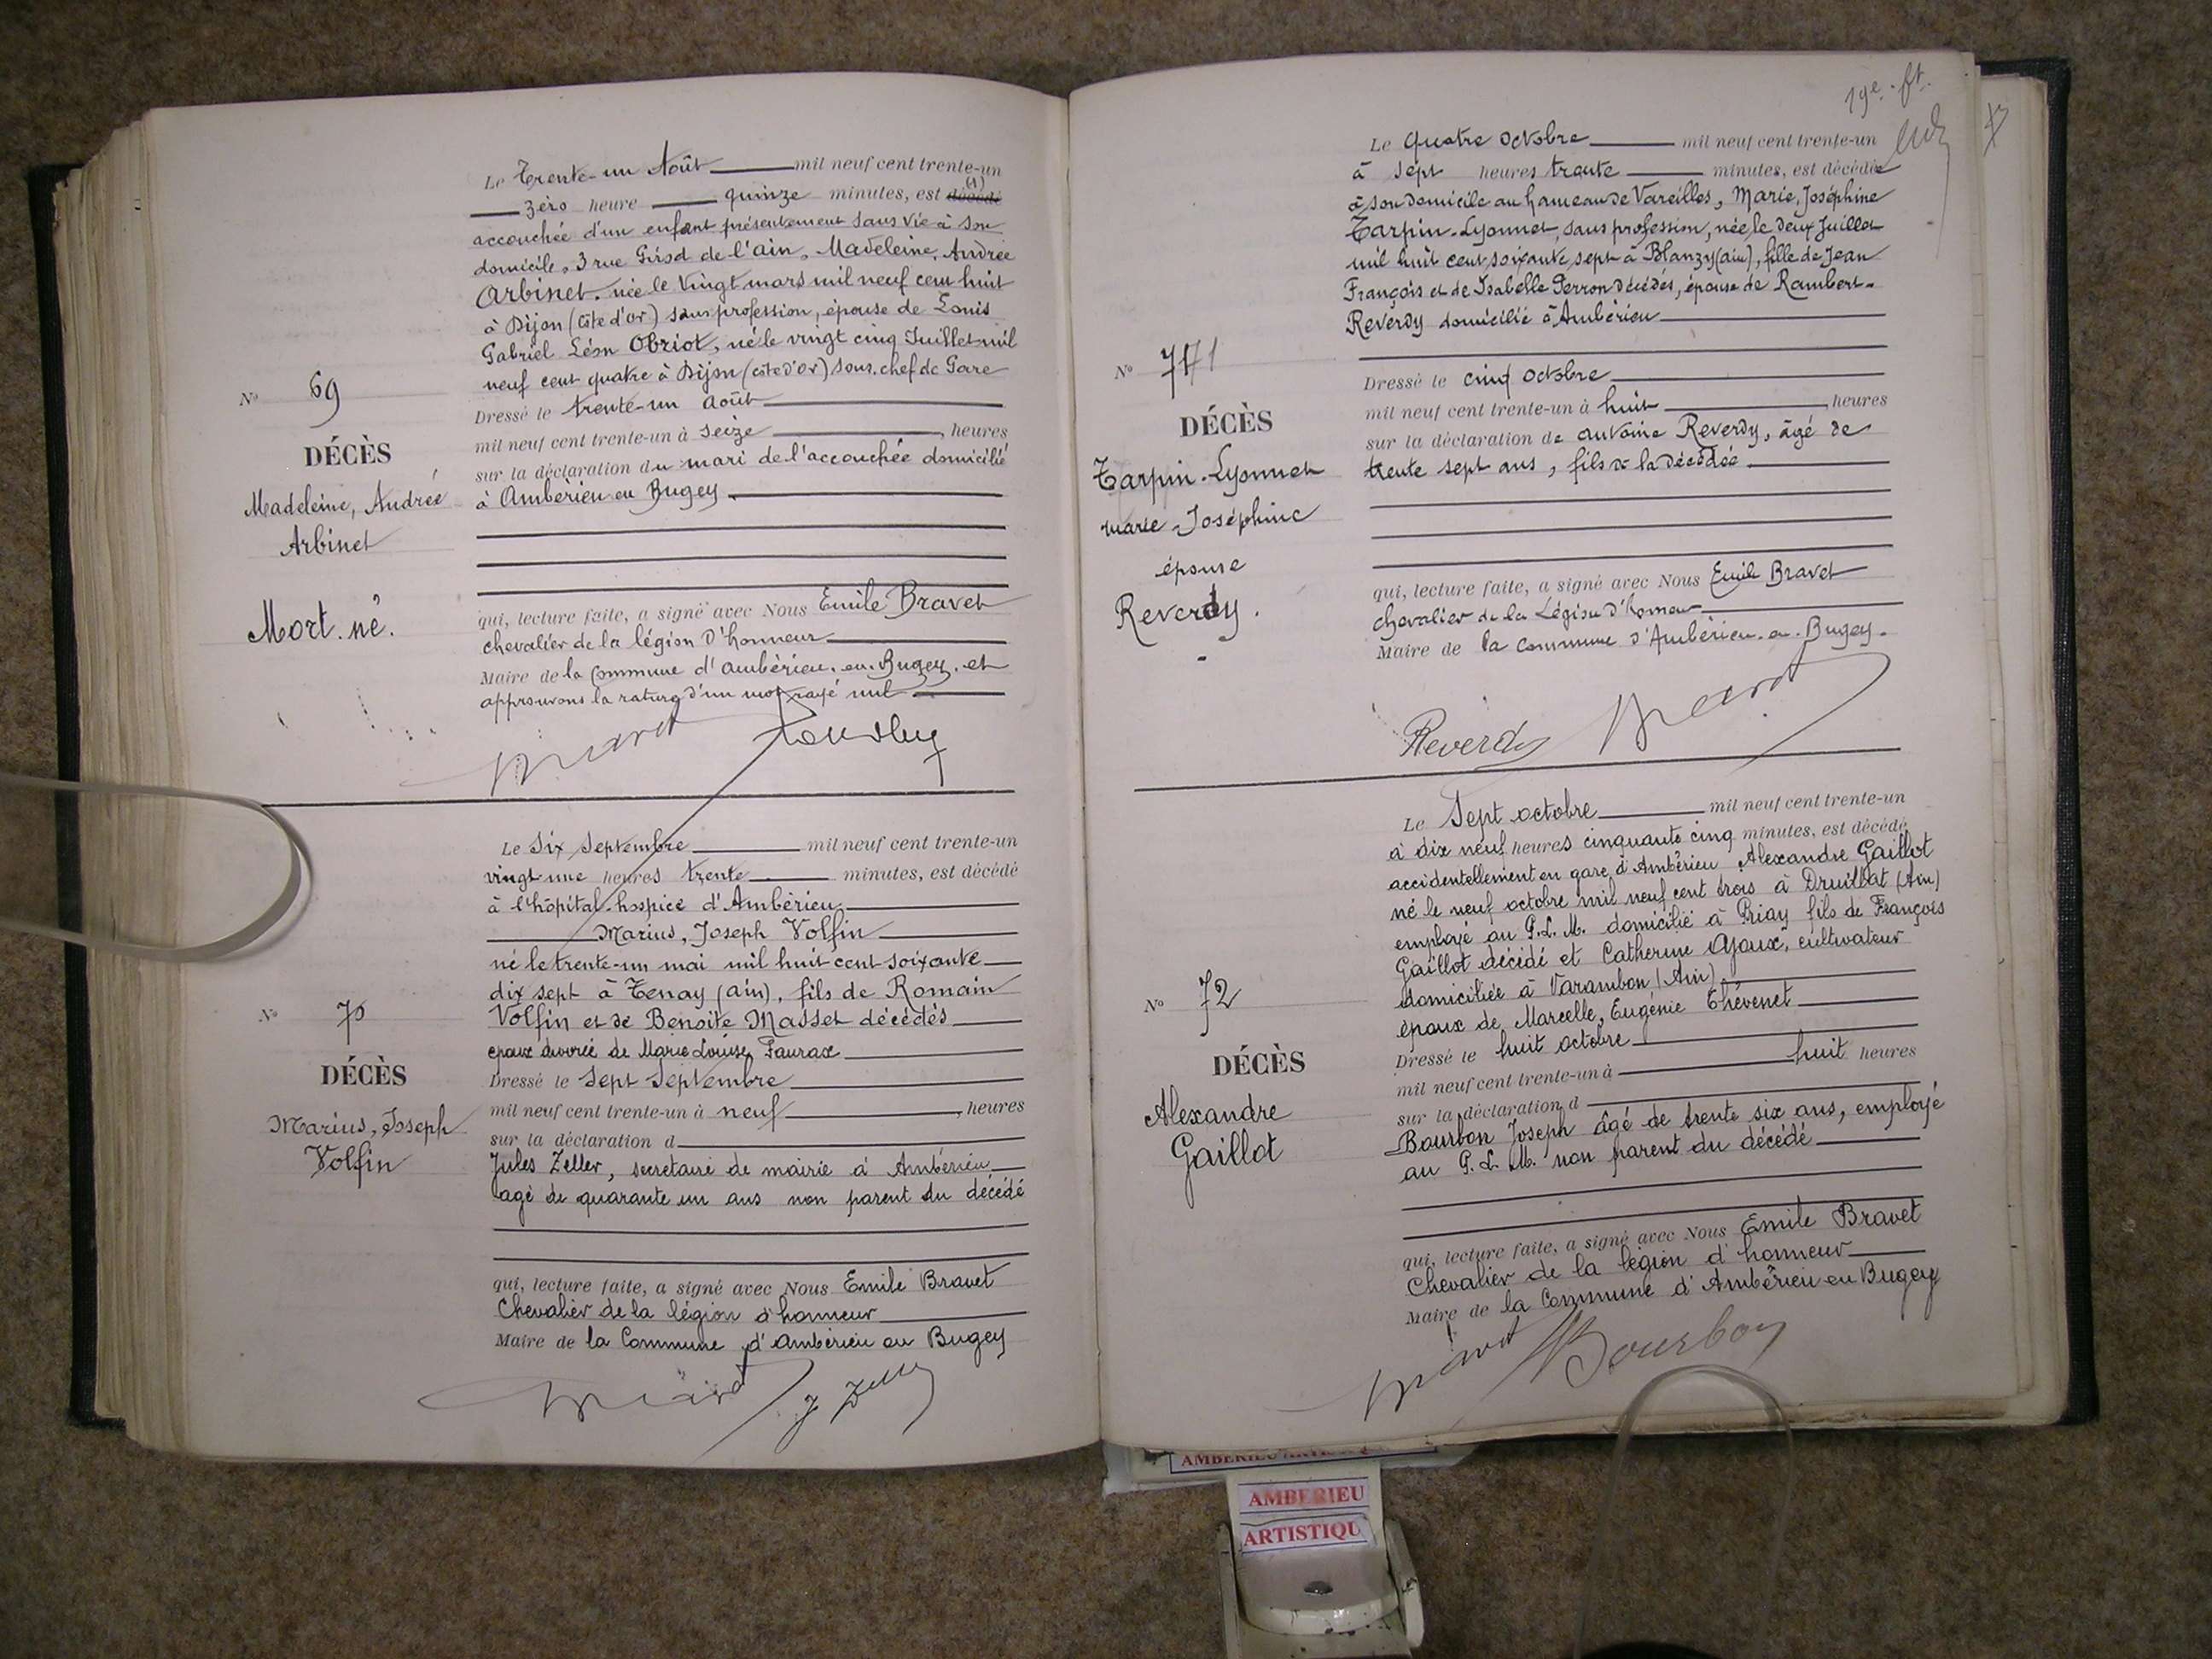 Le Trente-un Août mil neuf cent trente-un
zéro heure quinze minutes, est décédé (1)
accouchée d'un enfant présentement sans vie à son
domicile, 3 rue Girod de l'ain, Madeleine, Andrée
Arbinet, née le Vingt mars mil neuf cent huit
à Dijon (Côte d'or) sans profession, épouse de Louis
Gabriel Léon Obriot, né le vingt cinq Juillet mil
neuf cent quatre à Dijon (côte d'or) sous.chef de Gare
Nº 69
DÉCÈS
Madeleine, Andrée
Arbinet
Mort.né.
Dressé le trente-un août
mil neuf cent trente-un à seize, heures
sur la déclaration du mari de l'accouchée domicilié
à Ambérieu en Bugey.
qui, lecture faite, a signé avec Nous Emile Bravet
chevalier de la légion d'honneur
Maire de la Commune d'ambérieu.en.Bugey. et
approuvons la rature d'un mot rayé nul
Le Six Septembre mil neuf cent trente-un
vingt une heures trente minutes, est décédé
à l'hôpital-hospice d'Ambérieu
Marius, Joseph Volfin
né le trente-un mai mil huit cent soixante
dix sept à Tenay (ain), fils de Romain
Volfin et de Benoite Masset décédés
époux divorcé de Marie Louise Faurax
Nº 70
DÉCÈS
Marius, Joseph
Volfin
Dressé le sept Septembre
mil neuf cent trente-un à neuf, heures
sur la déclaration d
Jules Zeller, secrétaire de mairie à Ambérieu
agé de quarante un ans non parent du décédé
qui, lecture faite, a signé avec Nous Emile Bravet
Chevalier de la légion d'honneur
Maire de la Commune d'Ambérieu en Bugey
J Zeller
19e. ft.
Le Quatre octobre mil neuf cent trente-un
à sept heures trente minutes, est décédée
à son domicile au hameau de Vareilles, Marie, Joséphine
Tarpin-Lyonnet, sans profession, née le deux Juillet
mil huit cent soixante sept à Blanzy (ain), fille de Jean
François et de Isabelle Perron décédés, épouse de Rambert-
Reverdy domicilié à Ambérieu
Nº 71
DÉCÈS
Tarpin-Lyonnet
marie-Joséphine
épouse
Reverdy.
Dressé le cinq octobre
mil neuf cent trente-un à huit, heures
sur la déclaration de antoine Reverdy, âgé de
trente sept ans, fils de la décédée.
qui, lecture faite, a signé avec Nous Emile Bravet
chevalier de la Légion d'honneur
Maire de la commune d'Ambérieu.en.Bugey.
Reverdy Bravet
Le Sept octobre mil neuf cent trente-un
à dix neuf heures cinquante cinq minutes, est décédé
accidentellement en gare d'Ambérieu Alexandre Gaillot
né le neuf octobre mil neuf cent trois à Druillat (Ain)
employé au P.L.M. domicilié à Priay fils de François
Gaillot décédé et Catherine Ajoux, cultivateur
domiciliée à Varambon (Ain)
époux de Marcelle, Eugénie Thévenet
Nº 72
DÉCÈS
Alexandre
Gaillot
Dressé le huit octobre
mil neuf cent trente-un à huit heures
sur la déclaration d
Bourbon Joseph âgé de trente six ans, employé
au P.L.M. non parent du décédé
qui, lecture faite, a signé avec Nous Emile Bravet
Chevalier de la légion d'honneur
Maire de la Commune d'Ambérieu en Bugey
Bourbon
AMBERIEU
ARTISTIQU